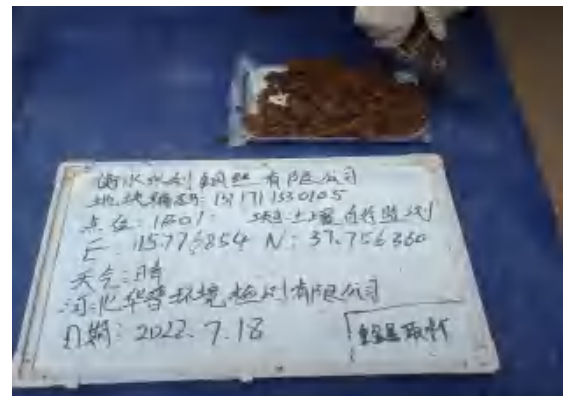 衡水永利钢丝有限公司
地块编码: 1311711530105
点位: 1B01: 土壤自行监测
E: 115.776854 N: 37.756360
天气: 晴
河北华普环境检测有限公司
日期: 2022.7.18
重金属取样